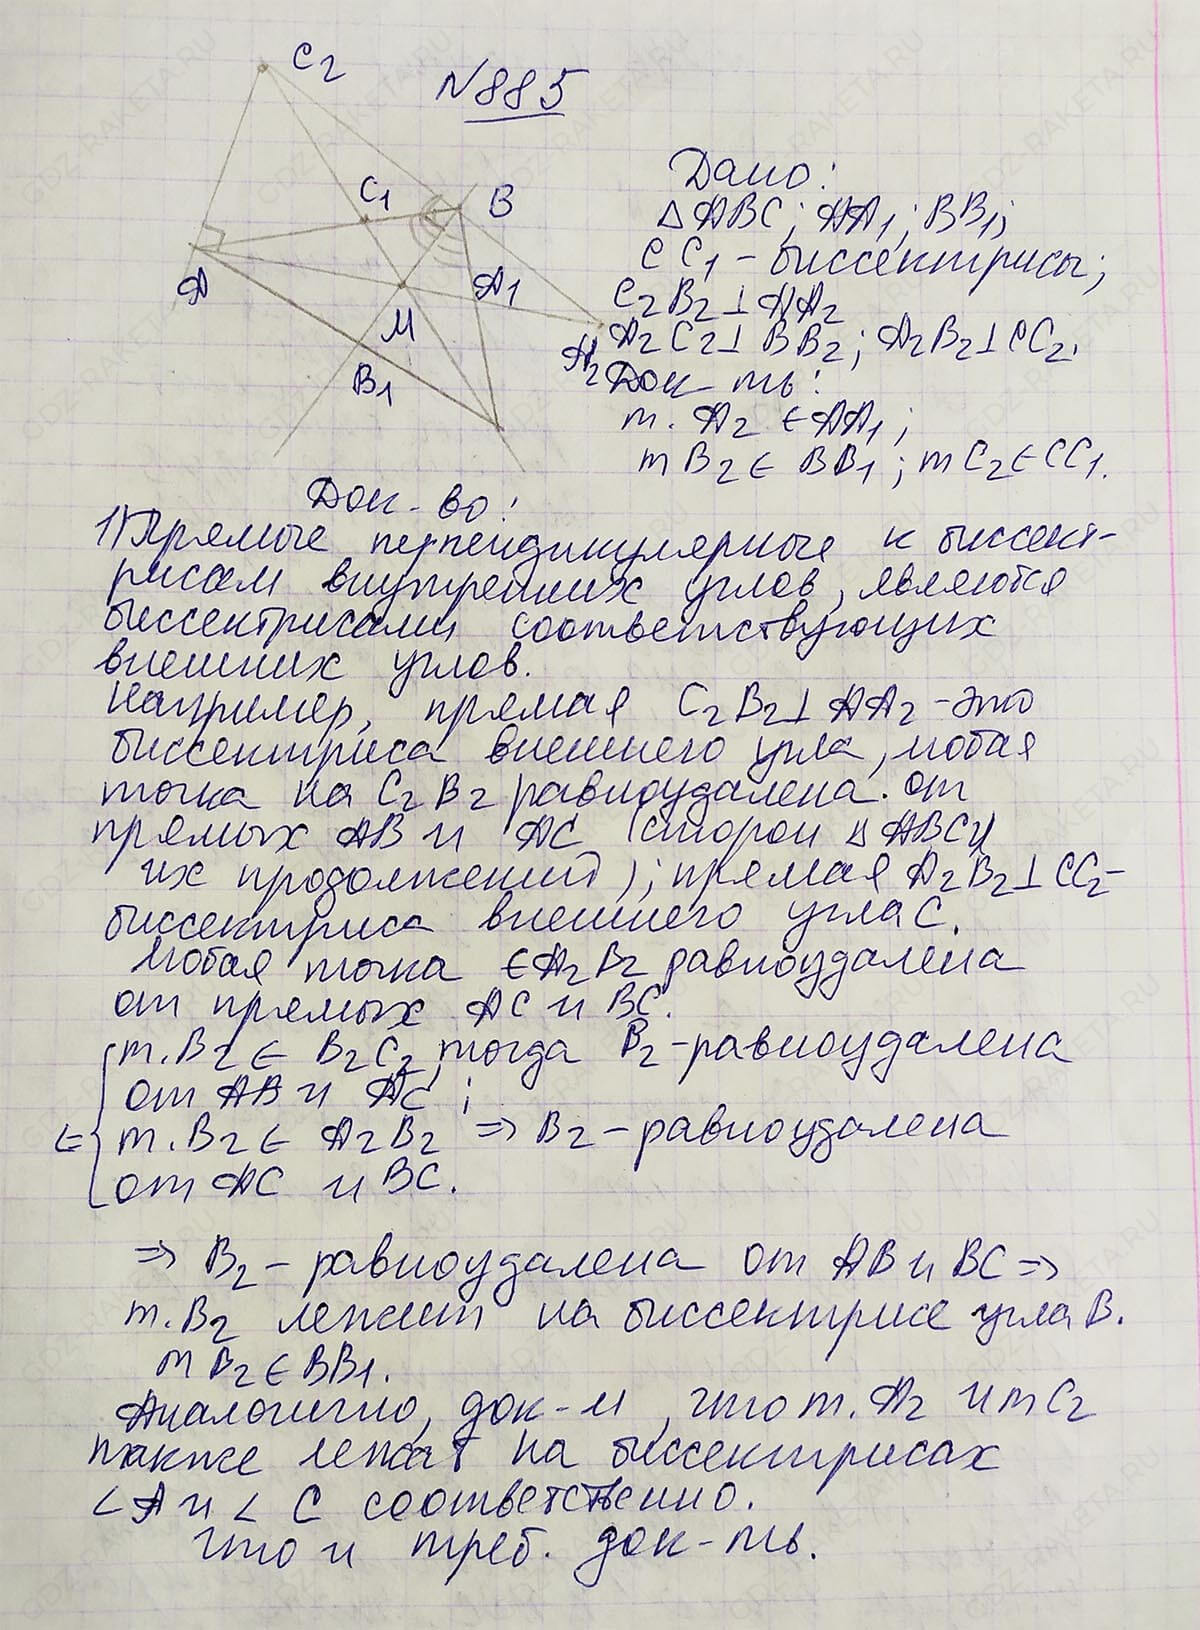 C₂
N885
C₁
B
A
A₁
M
B₁
A₂
Дано:
△ABC; AA₁; BB₁;
CC₁ - биссектрисы;
C₂B₂⊥AA₂
A₂C₂⊥BB₂; A₂B₂⊥CC₂.
Док-ть:
т. A₂ ∈ AA₁;
т B₂ ∈ BB₁; т C₂ ∈ CC₁.
Док-во:
1) Прямые перпендикулярные к биссект-
рисам внутренних углов, являются
биссектрисами соответствующих
внешних углов.
Например, прямая C₂B₂⊥AA₂ - это
биссектриса внешнего угла, любая
точка на C₂B₂ равноудалена. от
прямых AB и AC (сторон △ABC и
их продолжений); прямая A₂B₂⊥CC₂-
биссектриса внешнего угла C.
Любая точка ∈ A₂B₂ равноудалена
от прямых AC и BC.
т. B₂ ∈ B₂C₂, тогда B₂-равноудалена
от AB и AC;
т. B₂ ∈ A₂B₂ ⇒ B₂-равноудалена
от AC и BC.
⇒ B₂ - равноудалена от AB и BC ⇒
т. B₂ лежит на биссектрисе угла B.
т B₂ ∈ BB₁.
Аналогично, док-м, что т. A₂ и т C₂
также лежат на биссектрисах
∠A и ∠C соответственно.
Что и треб. док-ть.